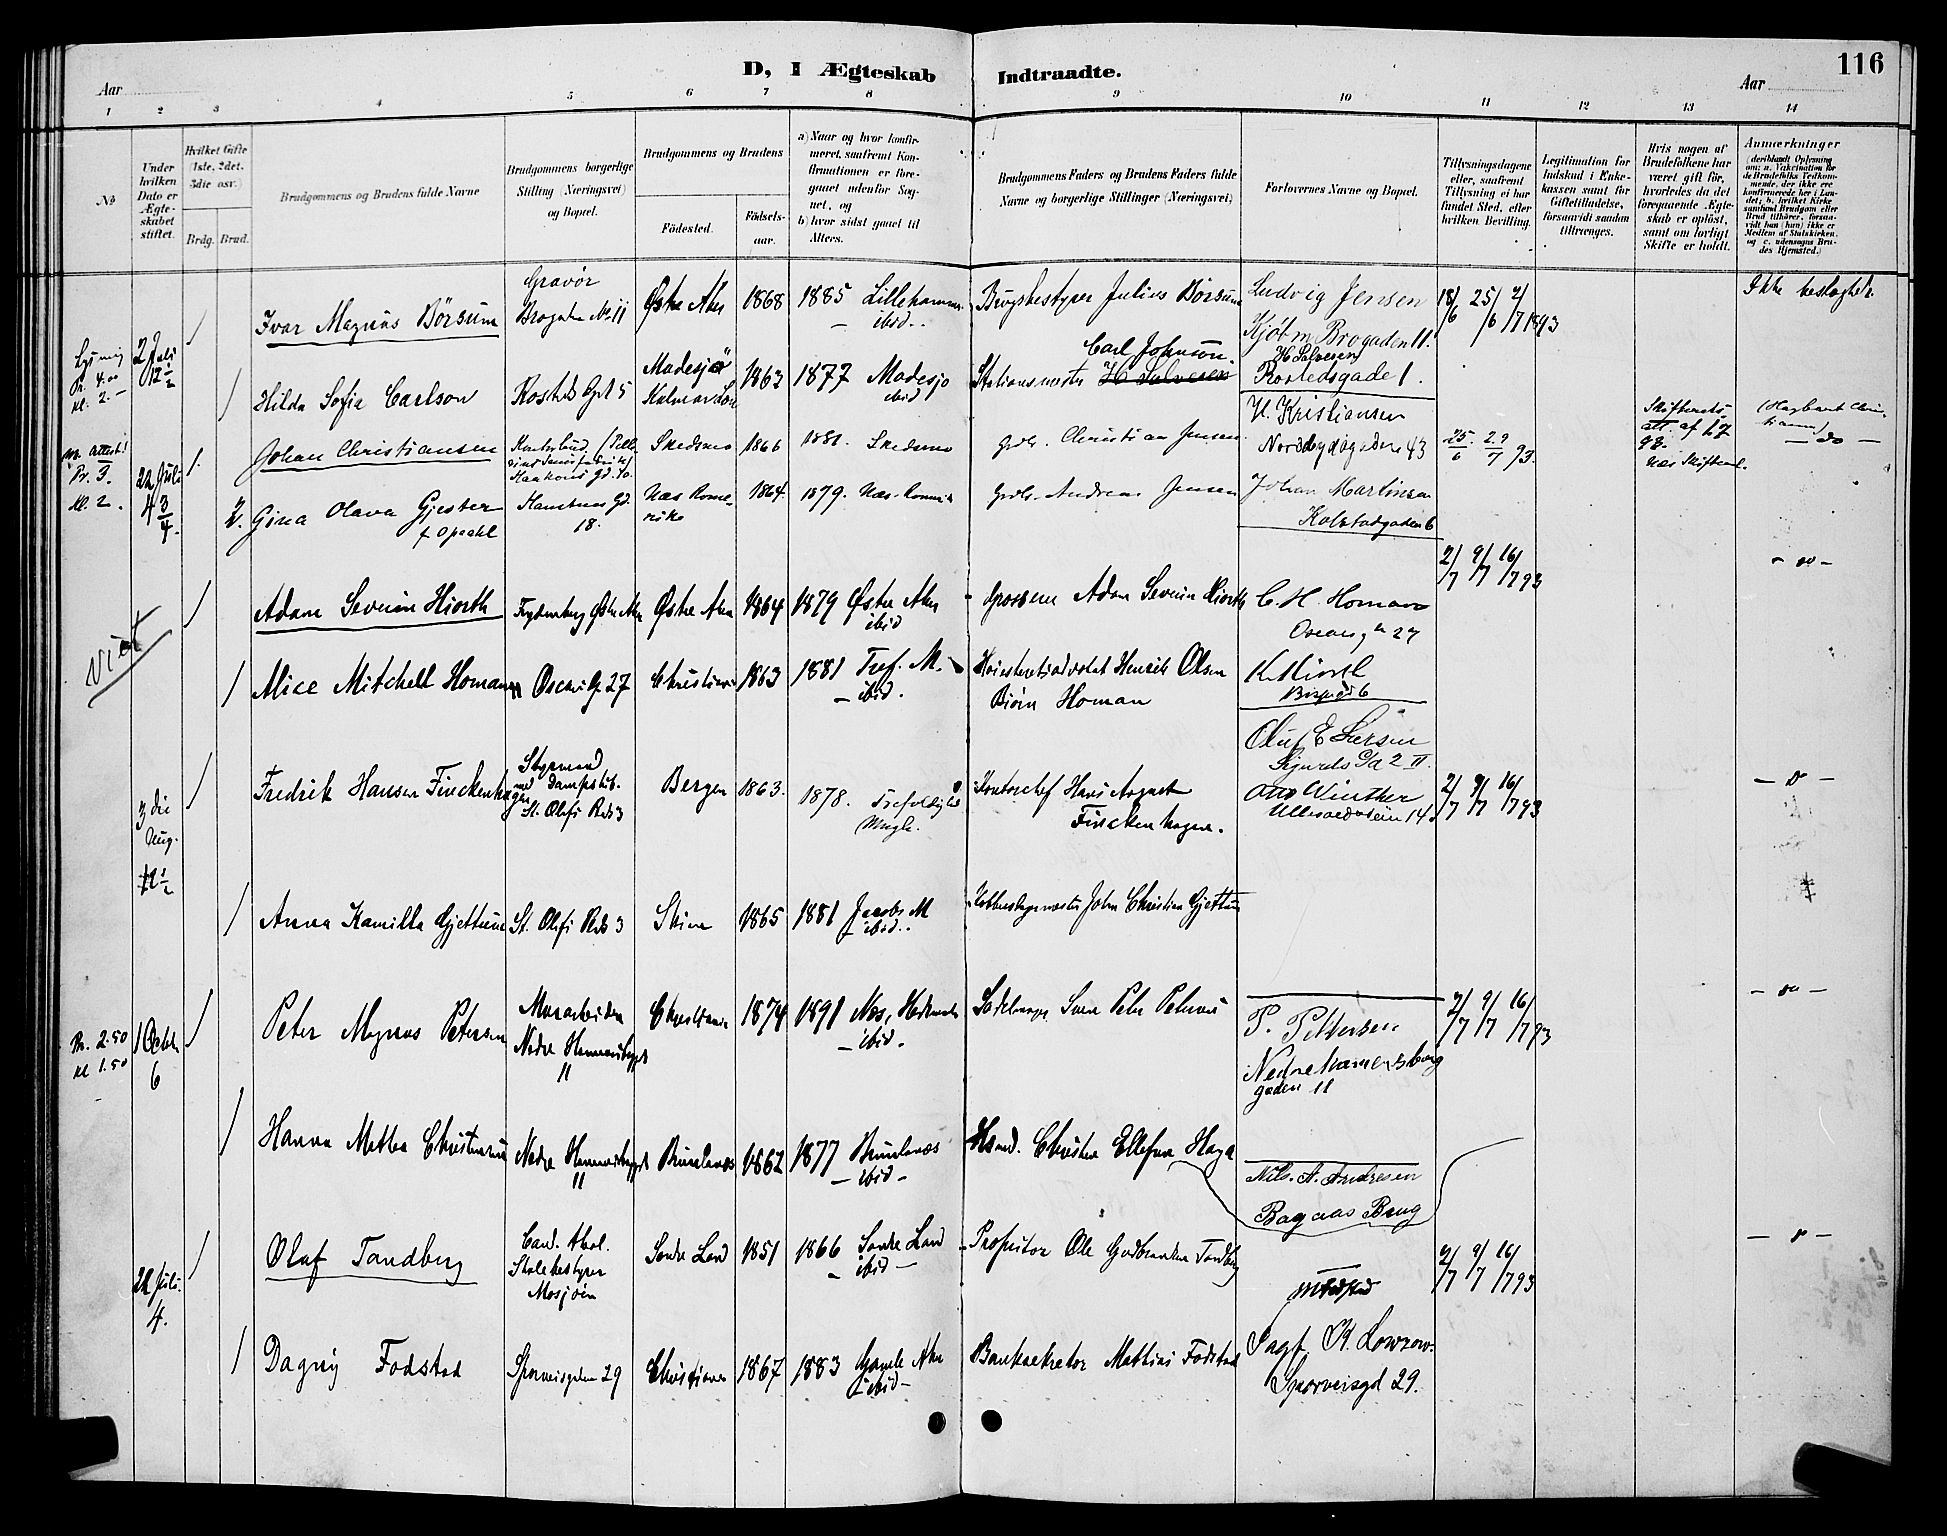 116
D, I Ægteskab Indtraadte.
Aar
Aar
1 2 3 4 5 6 7 8 9 10 11 12 13 14
No
Under hvilken Dato er Ægteskabet stiftet.
Hvilket Gifte (1ste, 2det, 3die osv.)
Brdg. Brud.
Brudgommens og Brudens fulde Navne
Brudgommens borgerlige Stilling (Næringsvei) og Bopæl.
Brudgommens og Brudens
Födested.
Födsels-aar.
a) Naar og hvor konfirmeret, saafremt Konfirmationen er foregaaet udenfor Sognet, og
b) hvor sidst gaaet til Alters.
Brudgommens Faders og Brudens Faders fulde Navne og borgerlige Stillinger (Næringsvei)
Forlovernes Navne og Bopæl.
Tillysningsdagene eller, saafremt Tillysning ei har fundet Sted, efter hvilken Bevilling.
Legitimation for Indskud i Enkekassen samt for Giftetilladelse, forsaavidt saadan tiltrænges.
Hvis nogen af Brudefolkene har været gift för, hvorledes da det foregaaende Ægteskab er oplöst, samt om lovligt Skifte er holdt.
Anmærkninger
2 Juli 12 1/2
Ivar Magnus Börsum
Gravör
Brogaten No 11
Østre Aker
1868
1885 Lillehammer
ibid.
Brugsbestyrer Julius Börsum
Ludvig Jensen
Kjöbm. Brogaden 11.
18/6 25/6 2/7 1893
Ikke beslægtede
Hilda Sofia Carlson
Rosteds Gt 5
Madesjö
Kalmar Län
1863
1877 Madesjo
ibid
Stationsmester Carl Johnson.
H. Salvesen
H Salvesen
Rostedsgade 1.
22 Juli 4 3/4.
Johan Christiansen
Skedsmo
1866
1881. Skedsmo
Grdbr. Christian Jensen
H. Kristiansen
Nordbygdgaden 43
25/6 2.9/7 93.
Skifterets
att. af
Gina Olava Gjester
f. Opachl
18.
Næs Romerike
1864.
1879. Næs-Romerik
Grdbr. Andreas Jensen
Johan Martinsen
Kolstadgaden 6
Viet
Adam Severin Hiorth
Frydenberg Østre Aker
Østre Aker
1864
1879 Østre Aker
ibid
Grosserer Adam Severin Hiorth
C. H. Homan
Oscars gt 27
2/7 9/7 16/7 93
- do -
Alice Mitchell Homan
Oscars G. 27
Christiania
1863
1881 Tref. M.
- ibid.
Høiesteretsadvokat Henrik Olsen
Biörn Homan
K. Hiorth
Bispegd 6
3 die Aug.
12 1/2
Fredrik Hansen Finckenhagen
Styrmand
St. Olafs Pl. 3
Bergen
1863.
1878. Trefoldighed
Mngh.
Kontorchef Hans August
Finckenhagen.
Oluf E Larsen
Sigurds Gd 2 II.
Otto Winther
Ullevoldsvein 14.
2/7 9/7 16/7 93
- do -
Anna Kamilla Gjettum
St. Olafs Pl. 3
Skien
1865
1881 Jacobs M
- ibid.
John Christian Gjettum
Br. 2.50
Kl 1.50
1 Octbr
6
Peter Magnus Petersen
Murarbeider
Nedre Hammersbggt
11
Christiania
1874
1891 Næs, Hedemarken
- ibid.
Sadelmager Sven Peter Petersen
P. Pettersen
Nedre Hamersborg
gaden 11
2/7 9/7 16/7 93
- do -
Hanna Mathea Christensen
Nedre Hammersbggt
11
Brunlanæs
1862
1877 Brunlanæs
- ibid -
Hsmd. Christen Ellefsen Haga
Nils. A. Andresen
Bagaas Brug
22 Juli
4.
Olaf Tandberg
Cand. theol.
Skolebestyrer
Mosjöen
Søndre Land
1851
1866 Søndre Land
- ibid -
Proprietær Ole Gudbrandsen Tandberg
2/7 9/7 16/7 93
- do -
Dagny Fodstad
Sporveisgaden 29
Christiania
1867
1883 Gamle Aker
- ibid -
Banksekretær Mathias Fodstad
Sagf. K. Lowzow.
Sporveisgd 29.